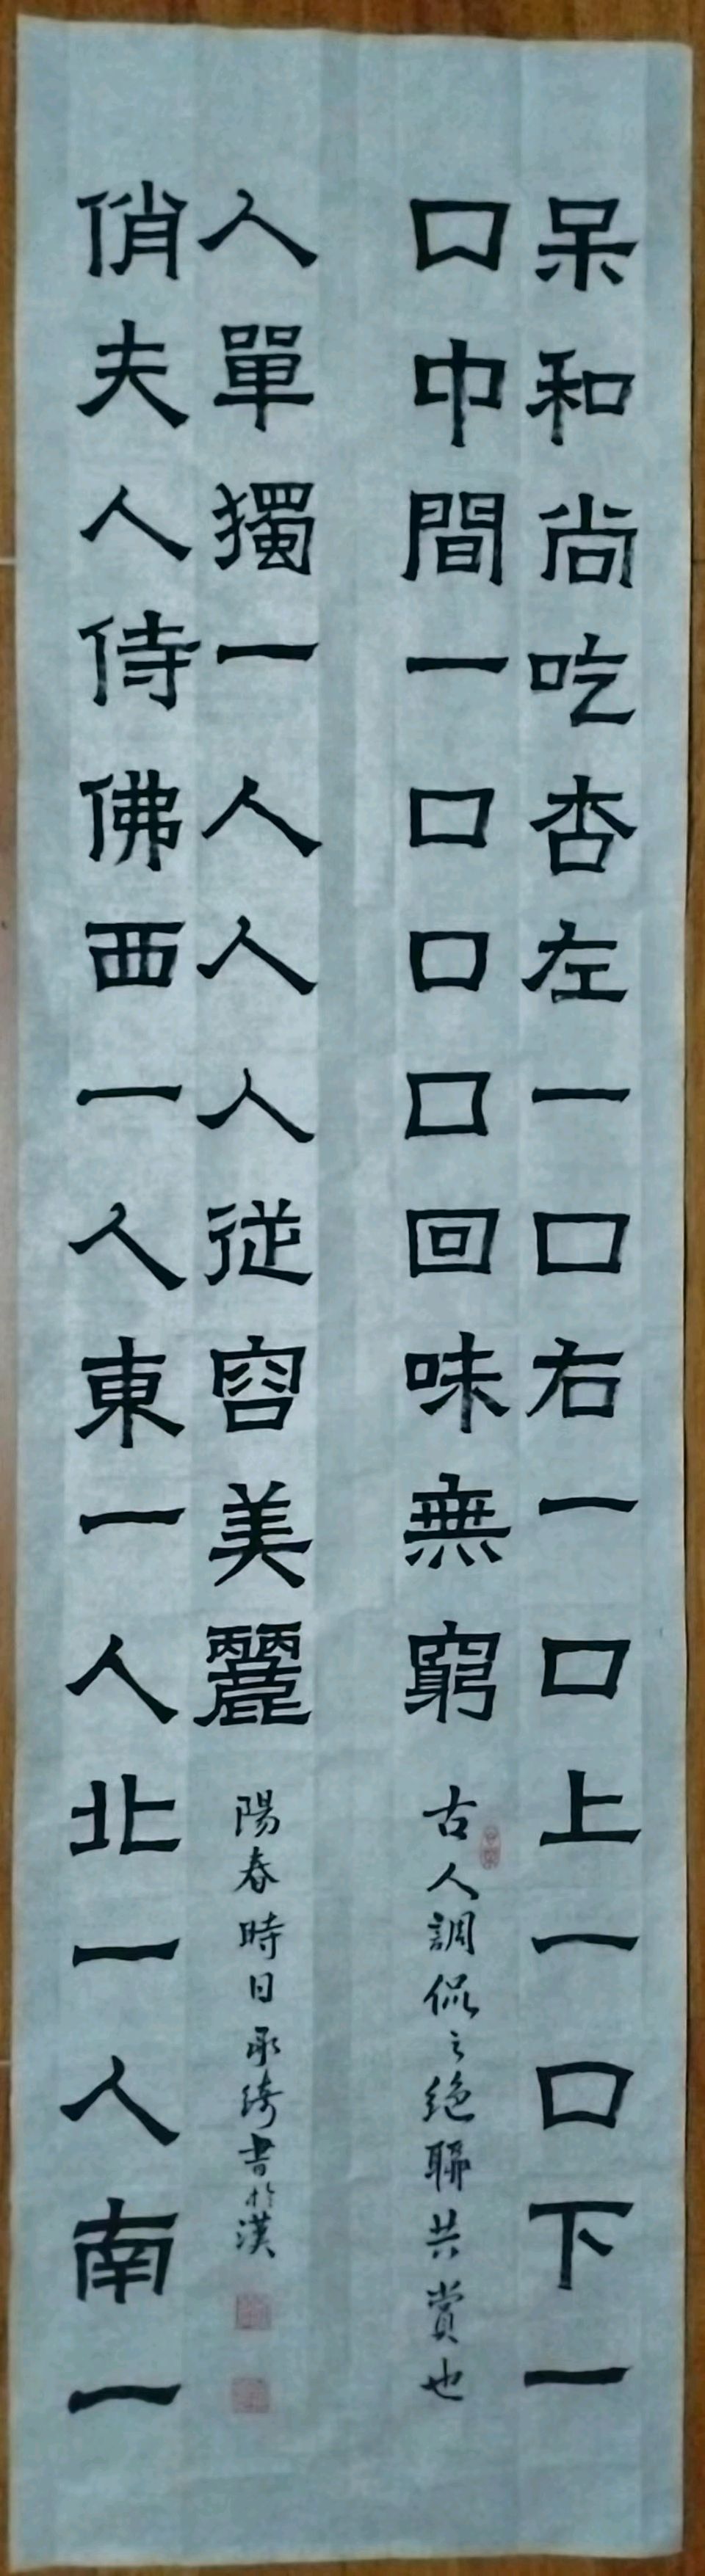 呆和尚吃杏左一口右一口上一口下一
口中間一口口口回味無窮
古人調侃之絶聯共賞也
人單獨一人人人從容美麗
陽春時日承绮書於漢
俏夫人侍佛西一人東一人北一人南一